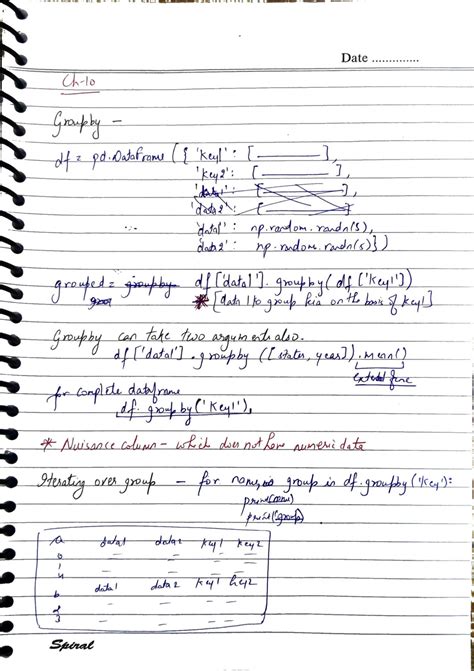 Date ..............
Ch-10
Groupby -
df = pd.DataFrame ({ 'key1' : [ ],
'key2' : [ ],
'data1' : [ ],
'data2' : [ ]
'data1' : np.random.randn(5),
'data2' : np.random.randn(5)})
grouped = groupby df['data1'].groupby( df ['key1'])
* [data 1 ko group kia on the basis of key1]
Groupby can take two arguments also.
df ['data1'] . groupby ([states, year]) . mean()
for complete dataframe
df. groupby ('key1'),
* Nuisance column - which does not have numeric data
Iterating over group - for name, group in df.groupby ('key1'):
print(name)
print(group)
a data1 data2 key1 key2
0
1
4
b data1 data2 key1 key2
2
3
Spiral